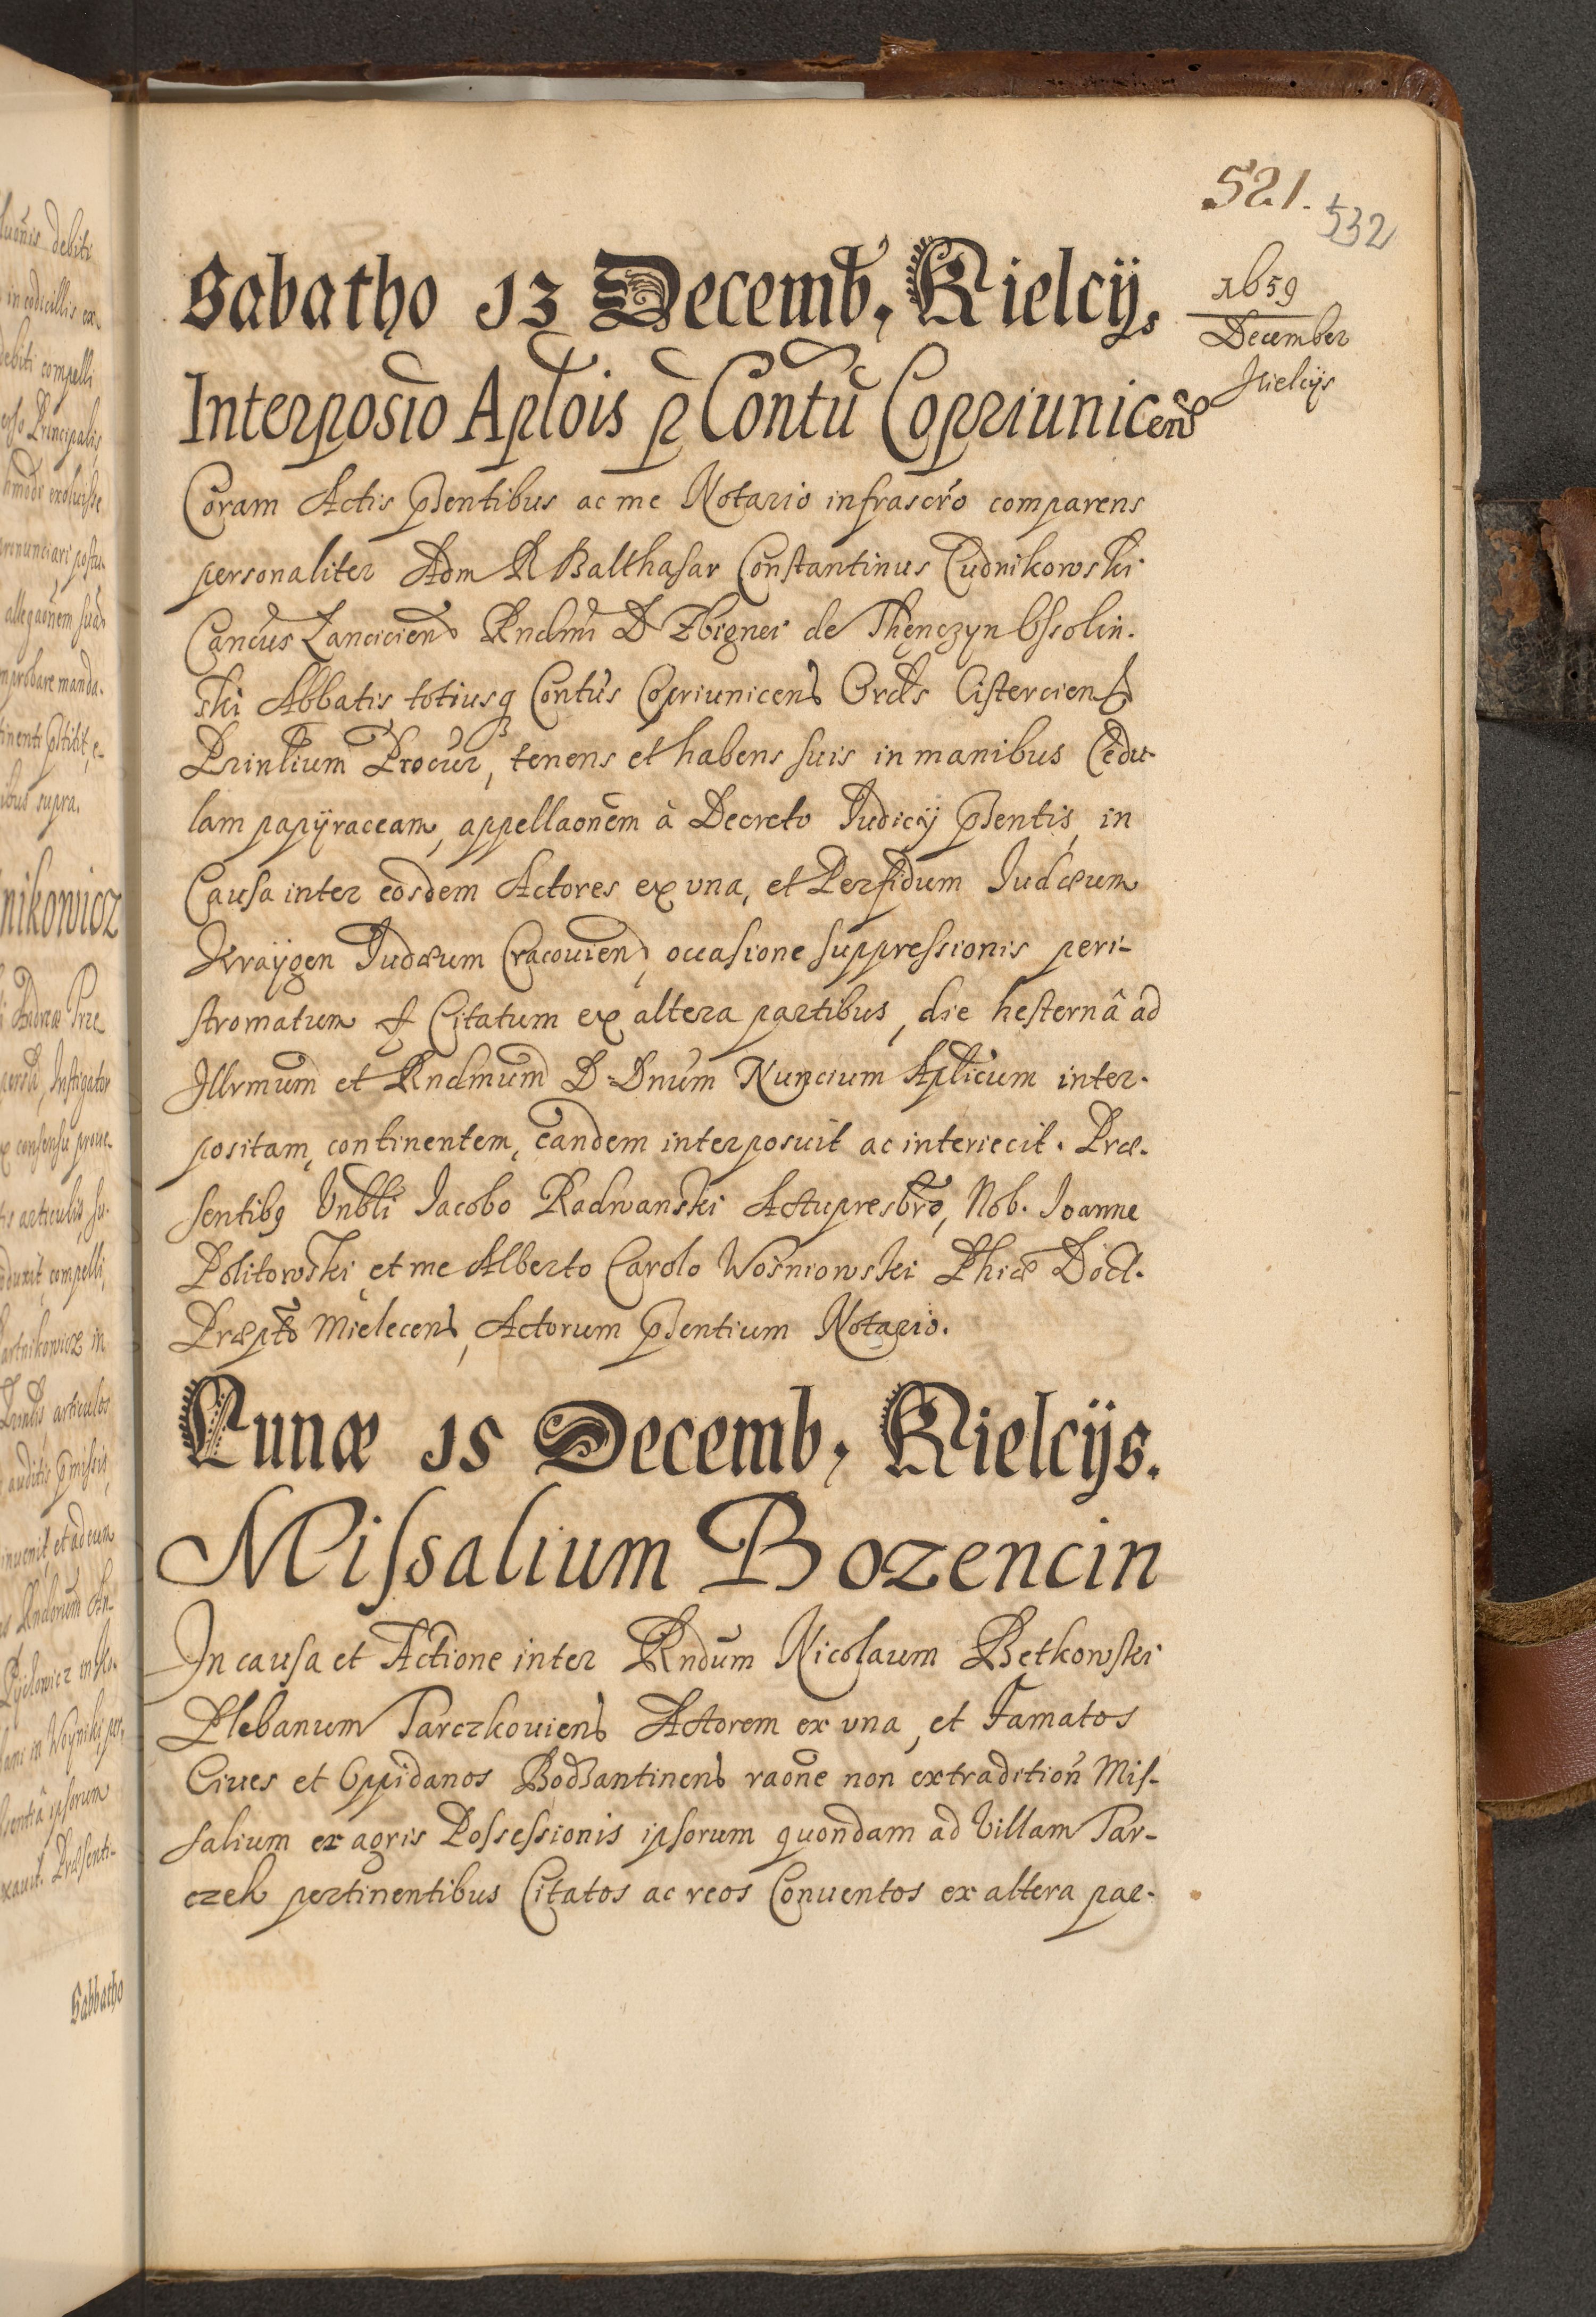 521.
532
1659
December
Kielcijs
Sabatho 13 Decemb, Kielcijs
Interposio Aplois p Contū Copriunicens
Coram Actis pñtibus ac me Notario infrascr̃o comparens
personaliter Adm R Balthasar Constantinus Cudnikowski
Cancus Lancicien Rndmi D Zbignei de Thenczyn Ossolin.
ski Abbatis totiusq Contūs Copriunicens Ordīs Cistercien
Prinlium Procur, tenens et habens suis in manibus Cedu-
lam papijraceam, appellaonēm à Decreto Judicij pñtis, in
Causa inter eosdem Actores ex vna, et Perfidum Judæum
Kraijgen Judæum Cracouien, occasione suppressionis peri-
stromatum & Citatum ex altera partibus, die hesternâ ad
Illrmum et Rndmum D. Dnum Nuncium Aplicum inter-
positam, continentem, eandem interposuit ac interiecit. Præ-
sentibq Vnbli Jacobo Radwanski Actupresbr̃o, Nob. Joanne
Politowski, et me Alberto Carolo Wosniowski Phiæ Doct.
Præpto Mielecens, Actorum pñtium Notario.
Lunæ 15 Decemb, Kielcijs.
Missalium Bozencin
In causa et Actione inter Rndum Nicolaum Betkowski
Plebanum Tarczkouiens Actorem ex vna, et Famatos
Ciues et Oppidanos Bodzantinens raone non extradition Mis-
salium ex agris Possessionis ipsorum quondam ad Villam Tar-
czek pertinentibus Citatos ac reos Conuentos ex altera par-
debiti
in codicillis ex
debiti compelli
Principalis
allegaonem
mprobare manda-
ibus supra.
nikowicz
Instigator
compelli,
articulos
inuenit, et ad eum
ipsorum
Præsenti-
Sabbatho